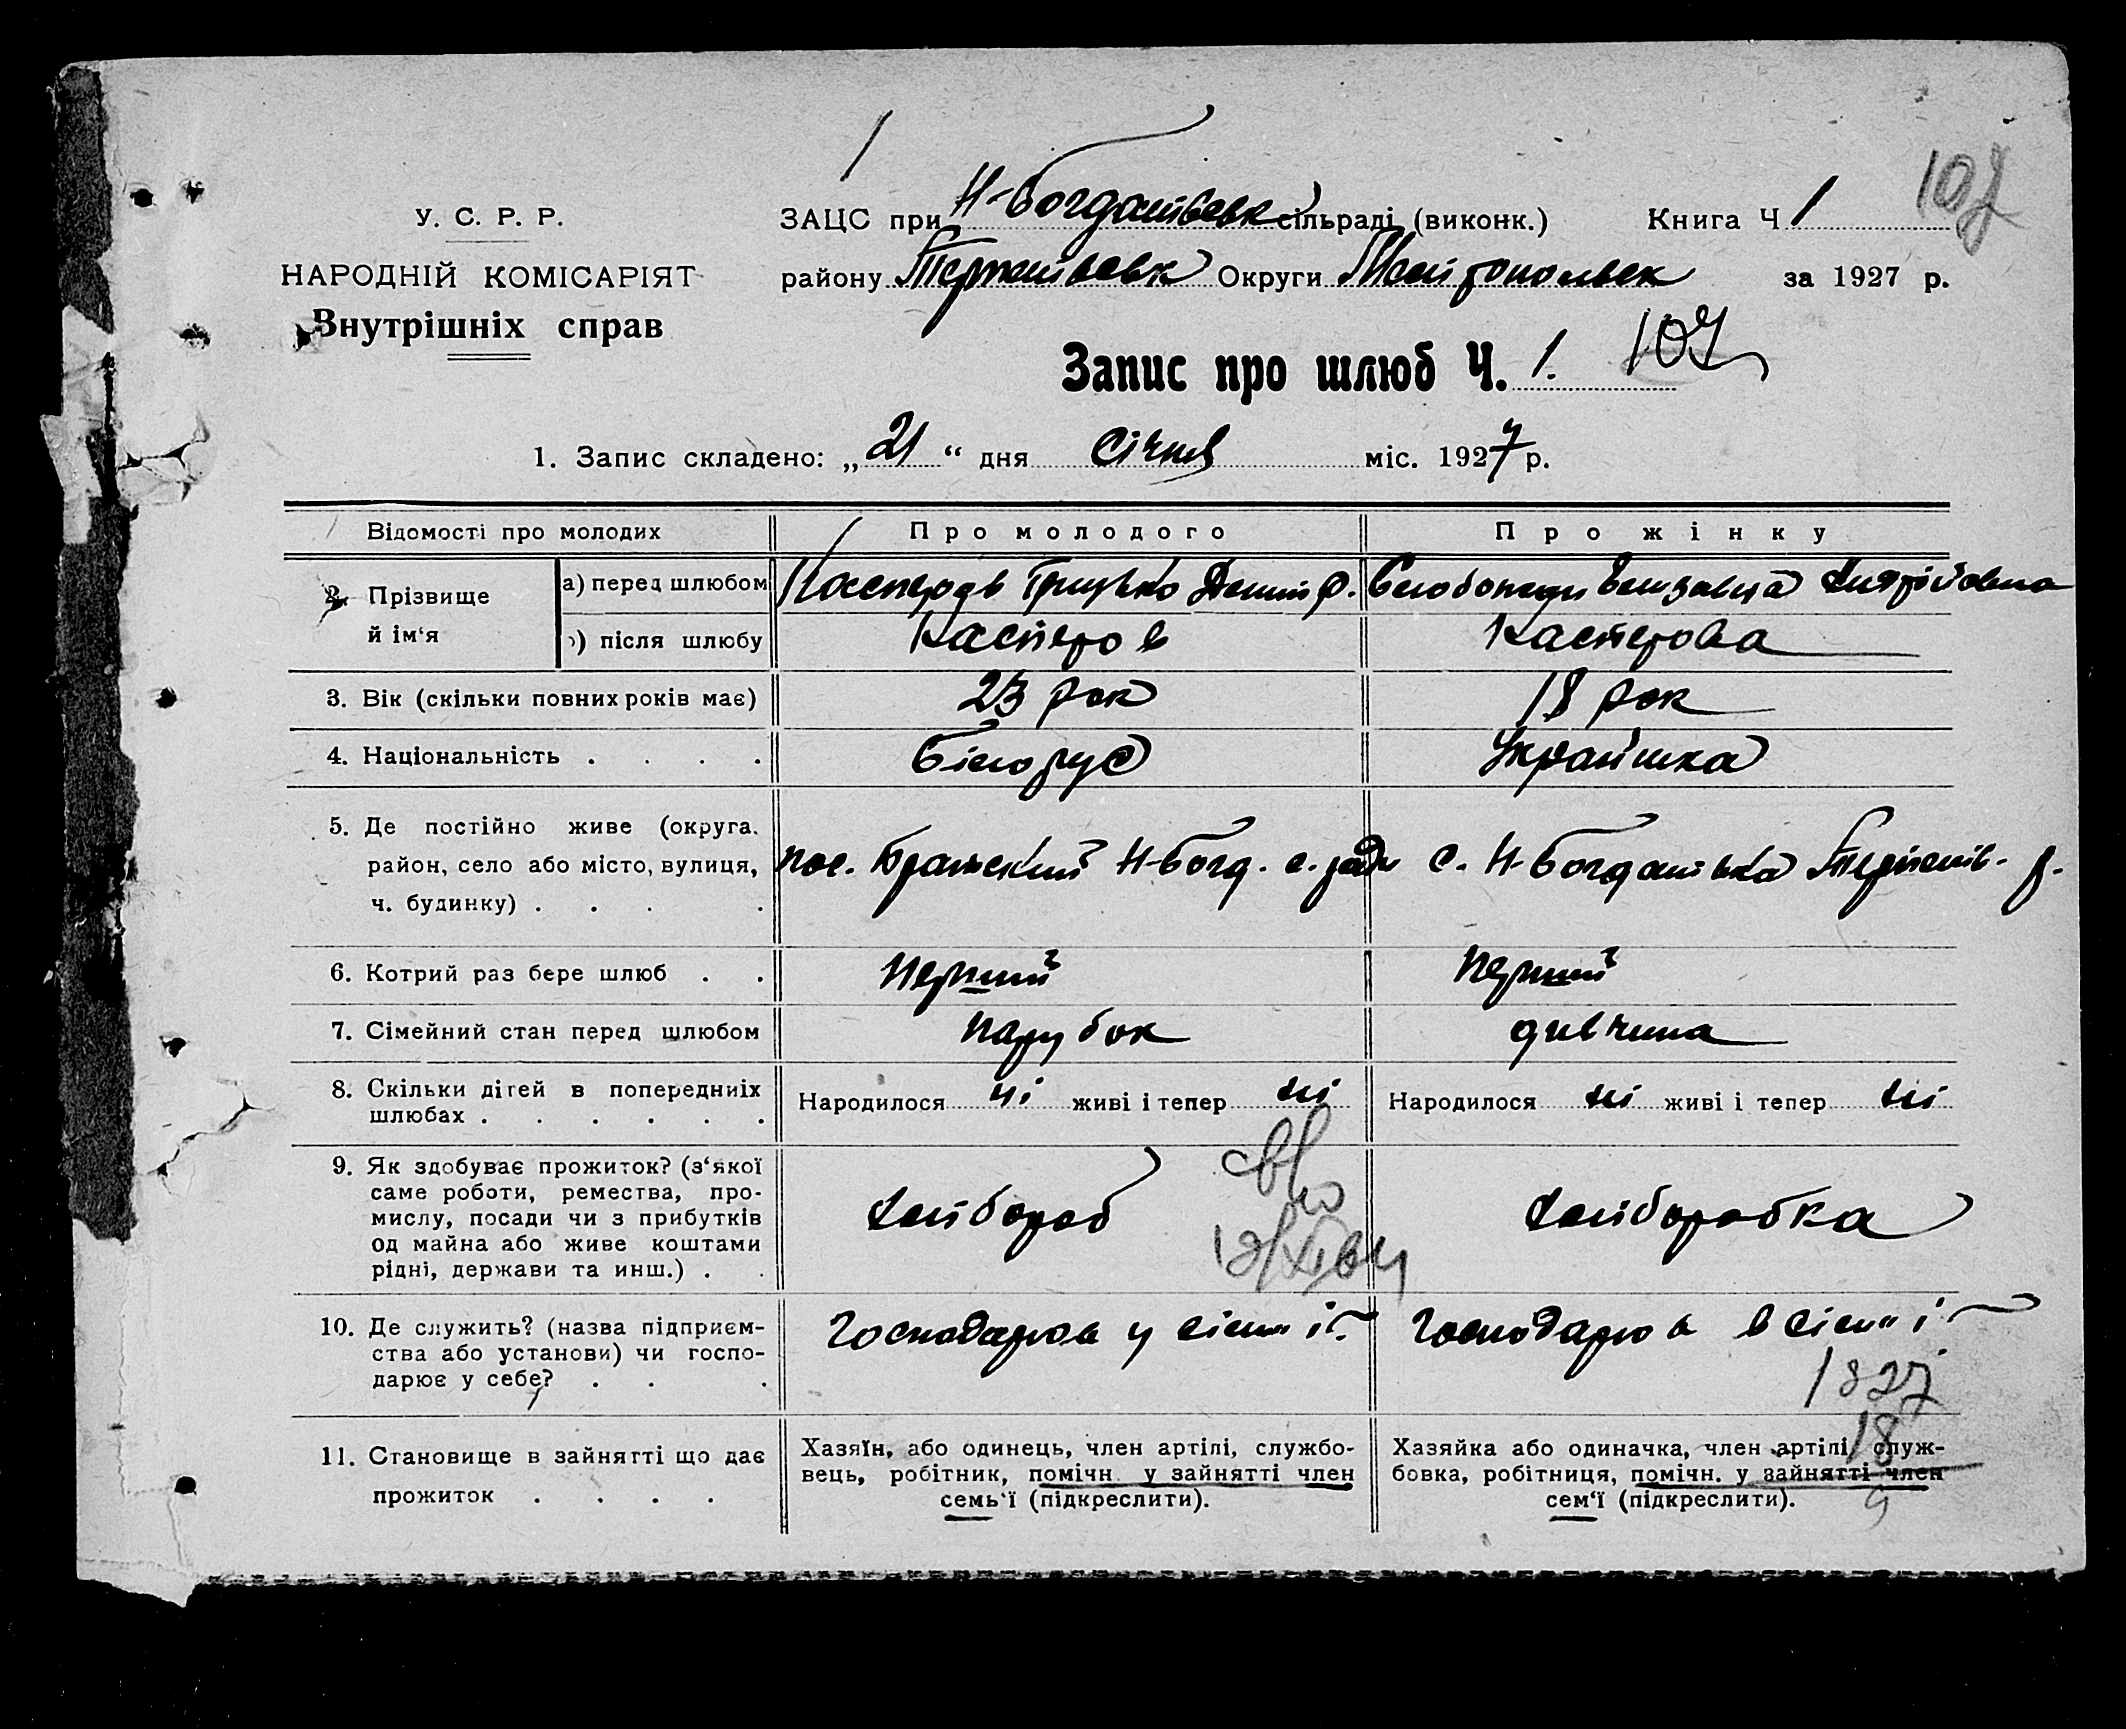 107
У. С. Р. Р.
НАРОДНІЙ КОМІСАРІЯТ
Внутрішніх справ
ЗАЦС при Н-Богданівськ сільраді (виконк.) Книга Ч 1
району Терпинівськ Округи Мелітопольськ за 1927 р.
Запис про шлюб Ч. 1. 107
1. Запис складено: „21“ дня січня міс. 1927 р.
Відомості про молодих Про молодого Про жінку
2. Прізвище й ім‘я а) перед шлюбом Кастеров Грицько Єлизавета Андріівна
б) після шлюбу Кастеров Кастерова
3. Вік (скільки повних років має) 23 рок 18 рок
4. Національність . . . . Білорус Українка
5. Де постійно живе (округа,
район, село або місто, вулиця, пос. Н-Богд. с. ради с. Н-Богданівка Терпинів. р.
ч. будинку) . . . .
6. Котрий раз бере шлюб . . перший перший
7. Сімейний стан перед шлюбом парубок дивчина
8. Скільки дітей в попередниіх
шлюбах . . . . . . Народилося ні живі і тепер ні Народилося ні живі і тепер ні
9. Як здобуває прожиток? (з‘якої
саме роботи, ремества, про-
мислу, посади чи з прибутків
од майна або живе коштами
рідні, держави та инш.) . . хлібороб хліборобка
10. Де служить? (назва підприєм-
ства або установи) чи госпо-
дарює у себе? . . . господарює у сім'ї господарює в сім'ї
1827
18
9
11. Становище в зайнятті що дає
прожиток . . . .
Хазяїн, або одинець, член артілі, службо-
вець, робітник, помічн. у зайнятті член
семь‘ї (підкреслити).
Хазяйка або одиначка, член артілі, служ-
бовка, робітниця, помічн. у зайнятті член
сем‘ї (підкреслити).